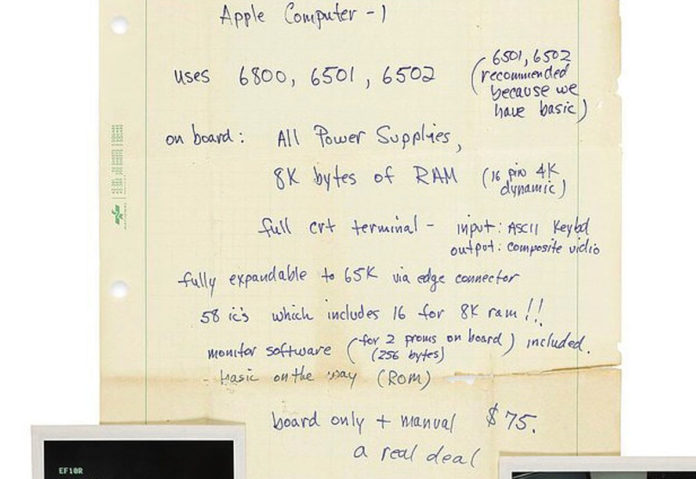 Apple Computer - 1
uses 6800, 6501, 6502 (6501, 6502
recommended
because we
have basic)
on board: All Power Supplies,
8K bytes of RAM (16 pin 4K
dynamic)
full crt terminal - input: ASCII Keybd
output: composite vidio
fully expandable to 65K via edge connector
58 ic's which includes 16 for 8K ram!!
monitor software (for 2 proms on board) included.
(256 bytes)
basic on the way (ROM)
board only + manual $75.
a real deal
EF10R